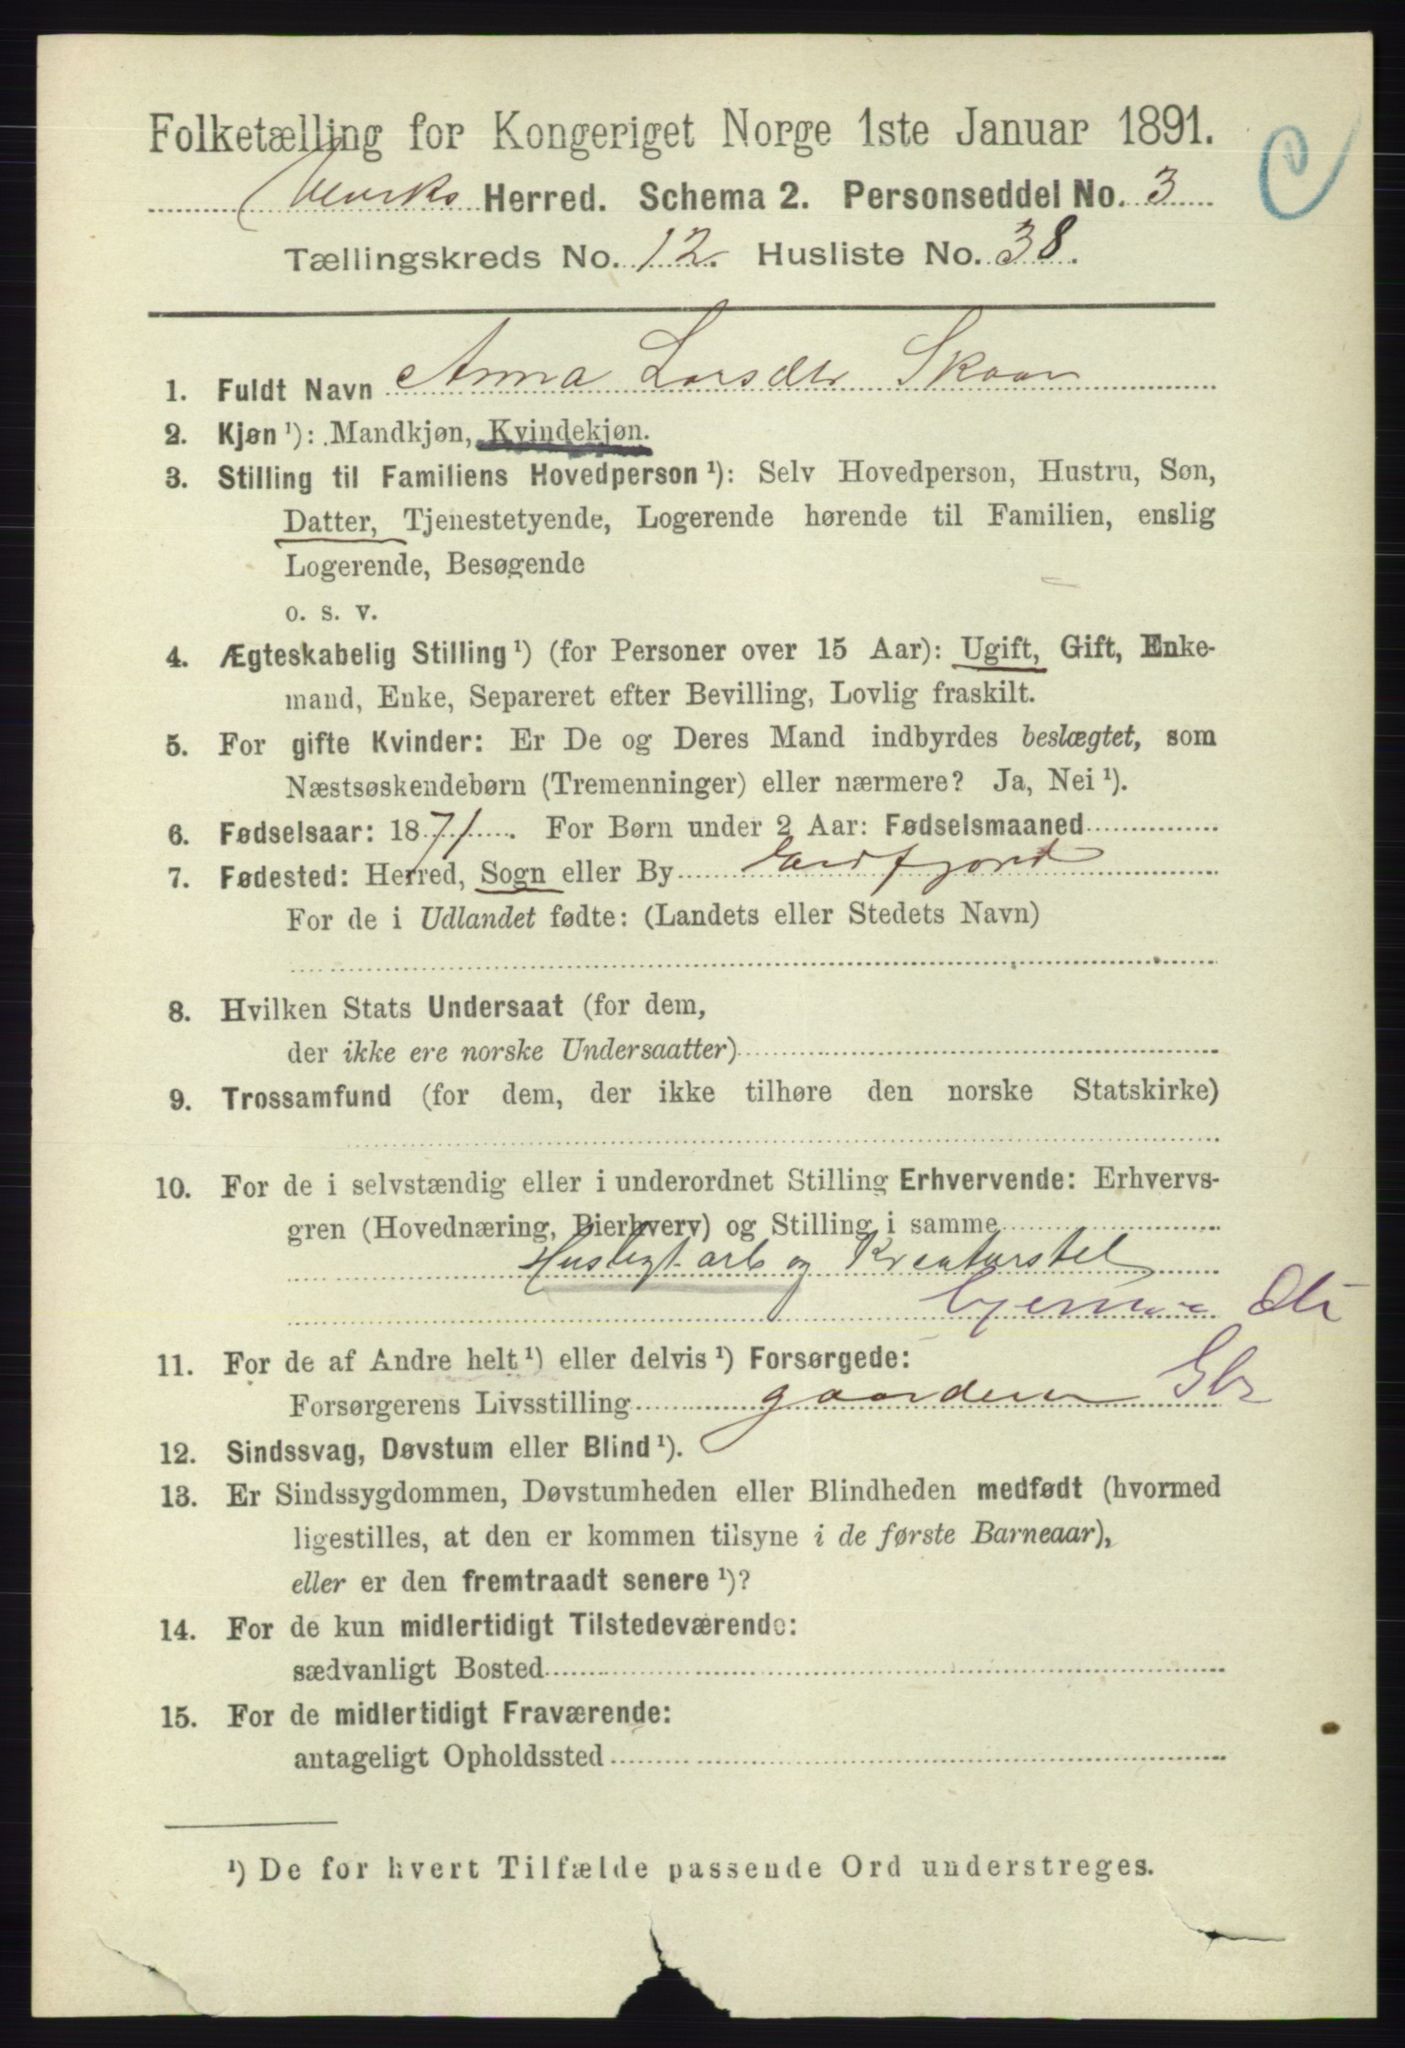 Folketælling for Kongeriget Norge 1ste Januar 1891.
Herred. Schema 2. Personseddel No. 3
Tællingskreds No. 12. Husliste No. 38.
1. Fuldt Navn Anna Larsdtr Skaar
2. Kjøn ¹): Mandkjøn, Kvindekjøn.
3. Stilling til Familiens Hovedperson ¹): Selv Hovedperson, Hustru, Søn,
Datter, Tjenestetyende, Logerende hørende til Familien, enslig
Logerende, Besøgende
o. s. v.
4. Ægteskabelig Stilling ¹) (for Personer over 15 Aar): Ugift, Gift, Enke-
mand, Enke, Separeret efter Bevilling, Lovlig fraskilt.
5. For gifte Kvinder: Er De og Deres Mand indbyrdes beslægtet, som
Næstsøskendebørn (Tremenninger) eller nærmere? Ja, Nei ¹).
6. Fødselsaar: 1871. For Børn under 2 Aar: Fødselsmaaned
7. Fødested: Herred, Sogn eller By Eidfjord
For de i Udlandet fødte: (Landets eller Stedets Navn)
8. Hvilken Stats Undersaat (for dem,
der ikke ere norske Undersaatter)
9. Trossamfund (for dem, der ikke tilhøre den norske Statskirke)
10. For de i selvstændig eller i underordnet Stilling Erhvervende: Erhvervs-
gren (Hovednæring, Bierhverv) og Stilling i samme
Husligt arb og Kreaturstel
hjemme Dtr
11. For de af Andre helt ¹) eller delvis ¹) Forsørgede:
Forsørgerens Livsstilling Gbr
12. Sindssvag, Døvstum eller Blind ¹).
13. Er Sindssygdommen, Døvstumheden eller Blindheden medfødt (hvormed
ligestilles, at den er kommen tilsyne i de første Barneaar),
eller er den fremtraadt senere ¹)?
14. For de kun midlertidigt Tilstedeværende:
sædvanligt Bosted
15. For de midlertidigt Fraværende:
antageligt Opholdssted
¹) De for hvert Tilfælde passende Ord understreges.